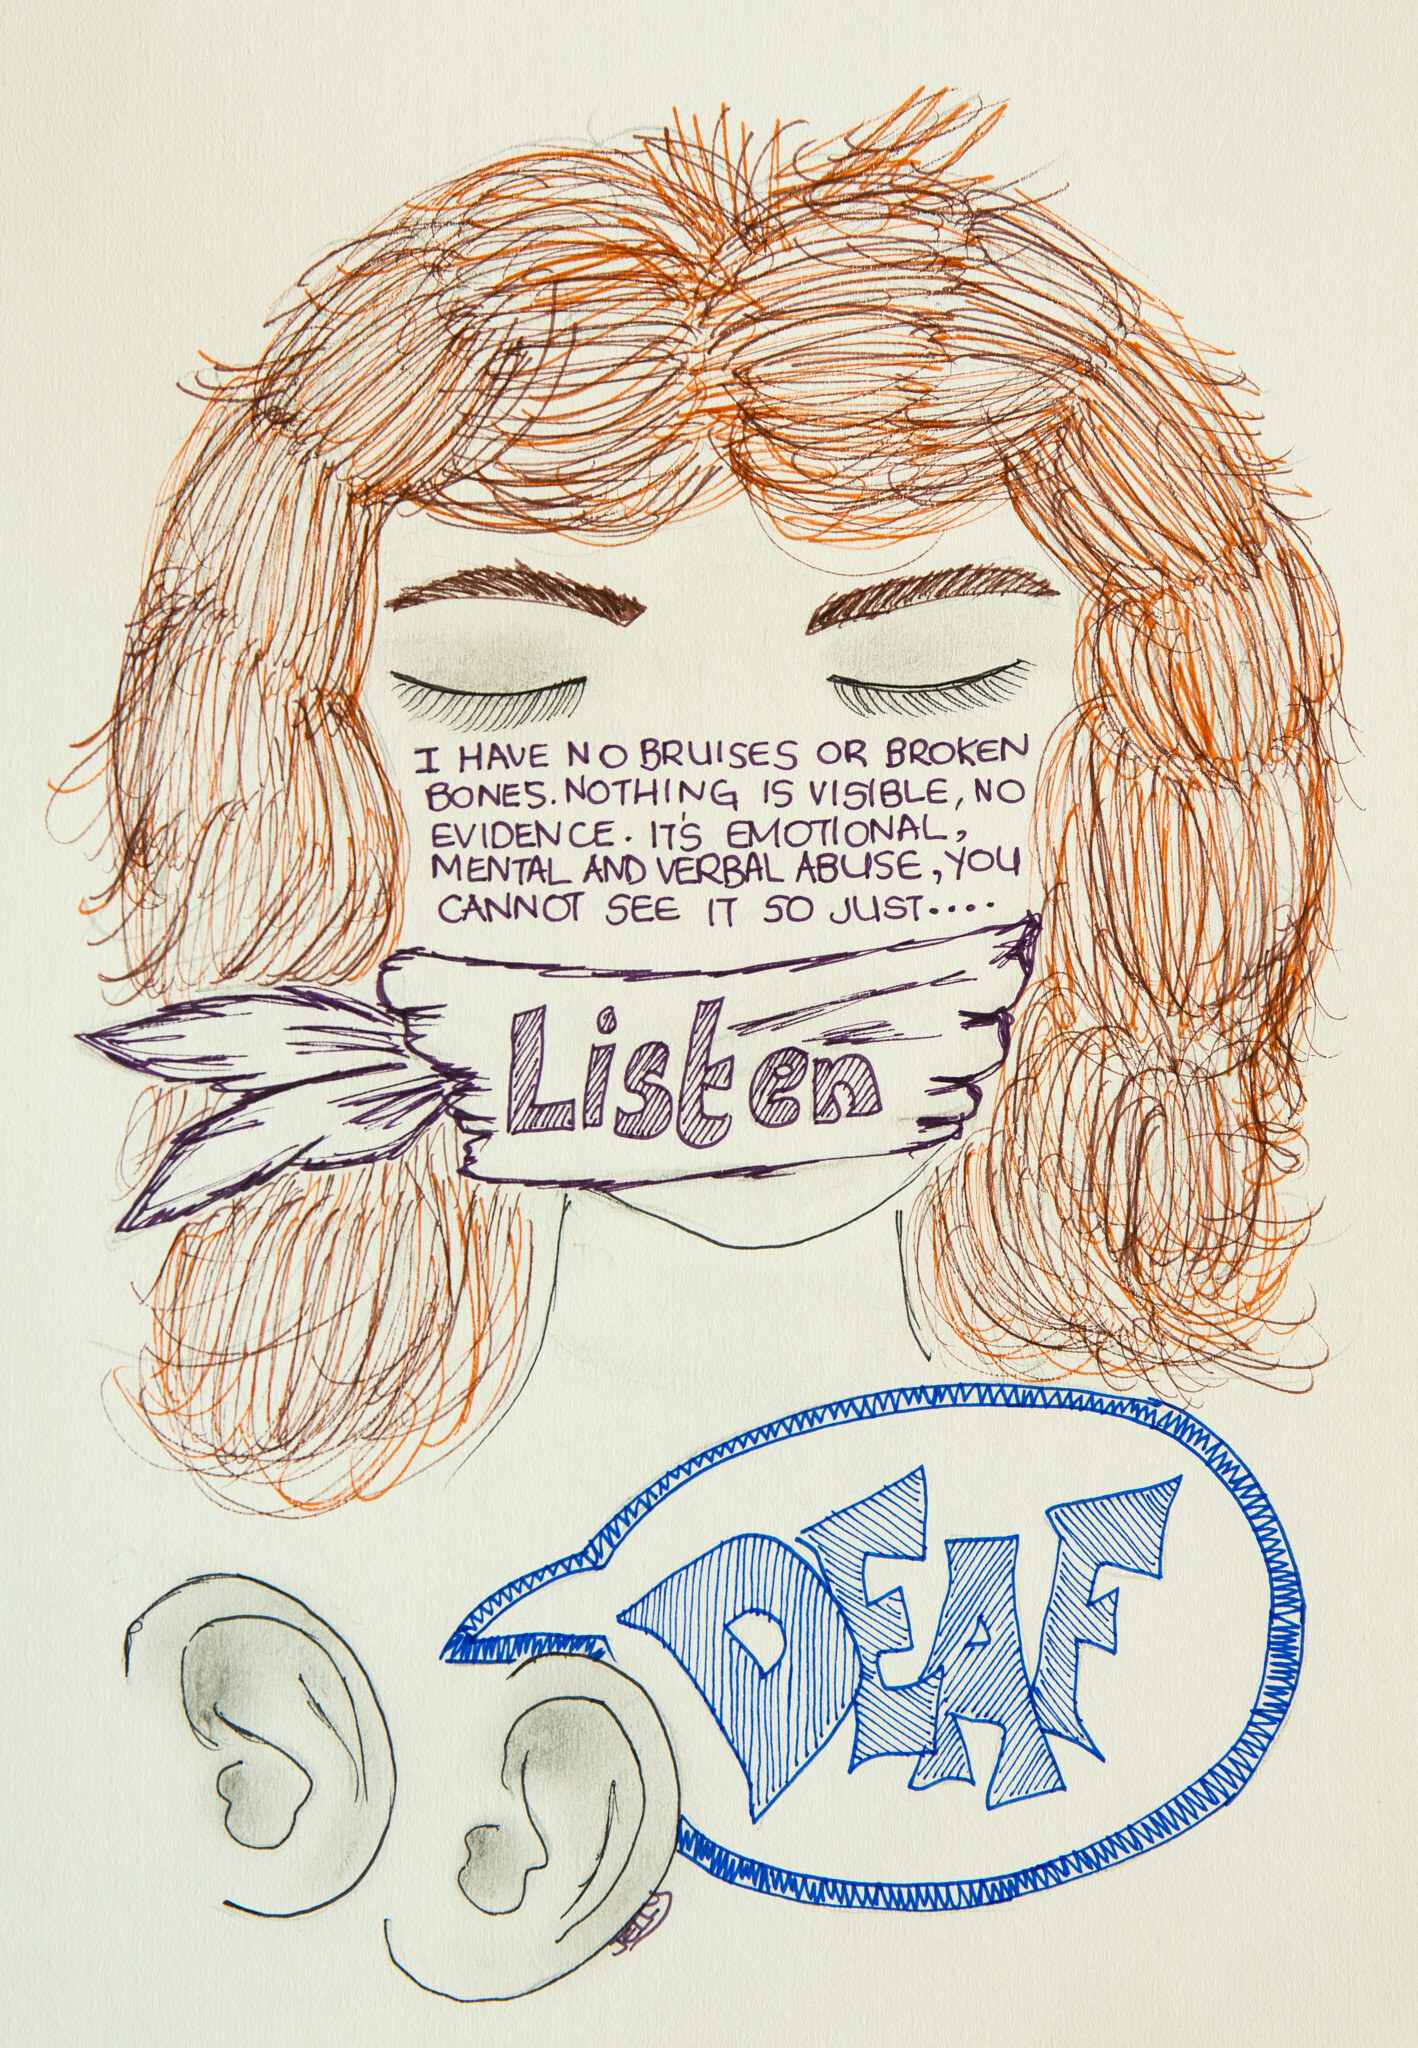 I HAVE NO BRUISES OR BROKEN
BONES. NOTHING IS VISIBLE, NO
EVIDENCE. IT'S EMOTIONAL,
MENTAL AND VERBAL ABUSE, YOU
CANNOT SEE IT SO JUST....
Listen
DEAF